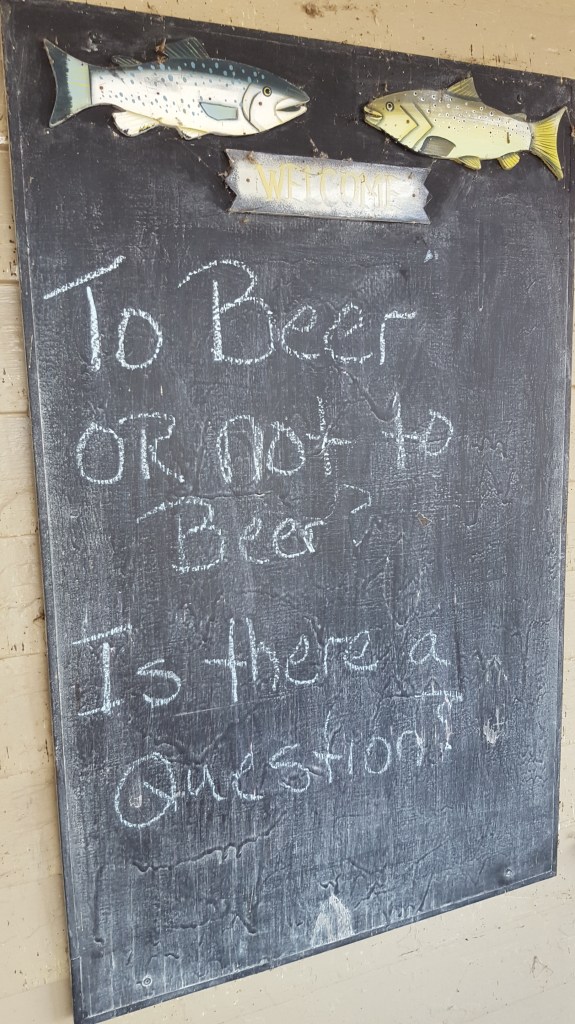 WELCOME
To Beer
OR not to
Beer?
Is there a
Question?